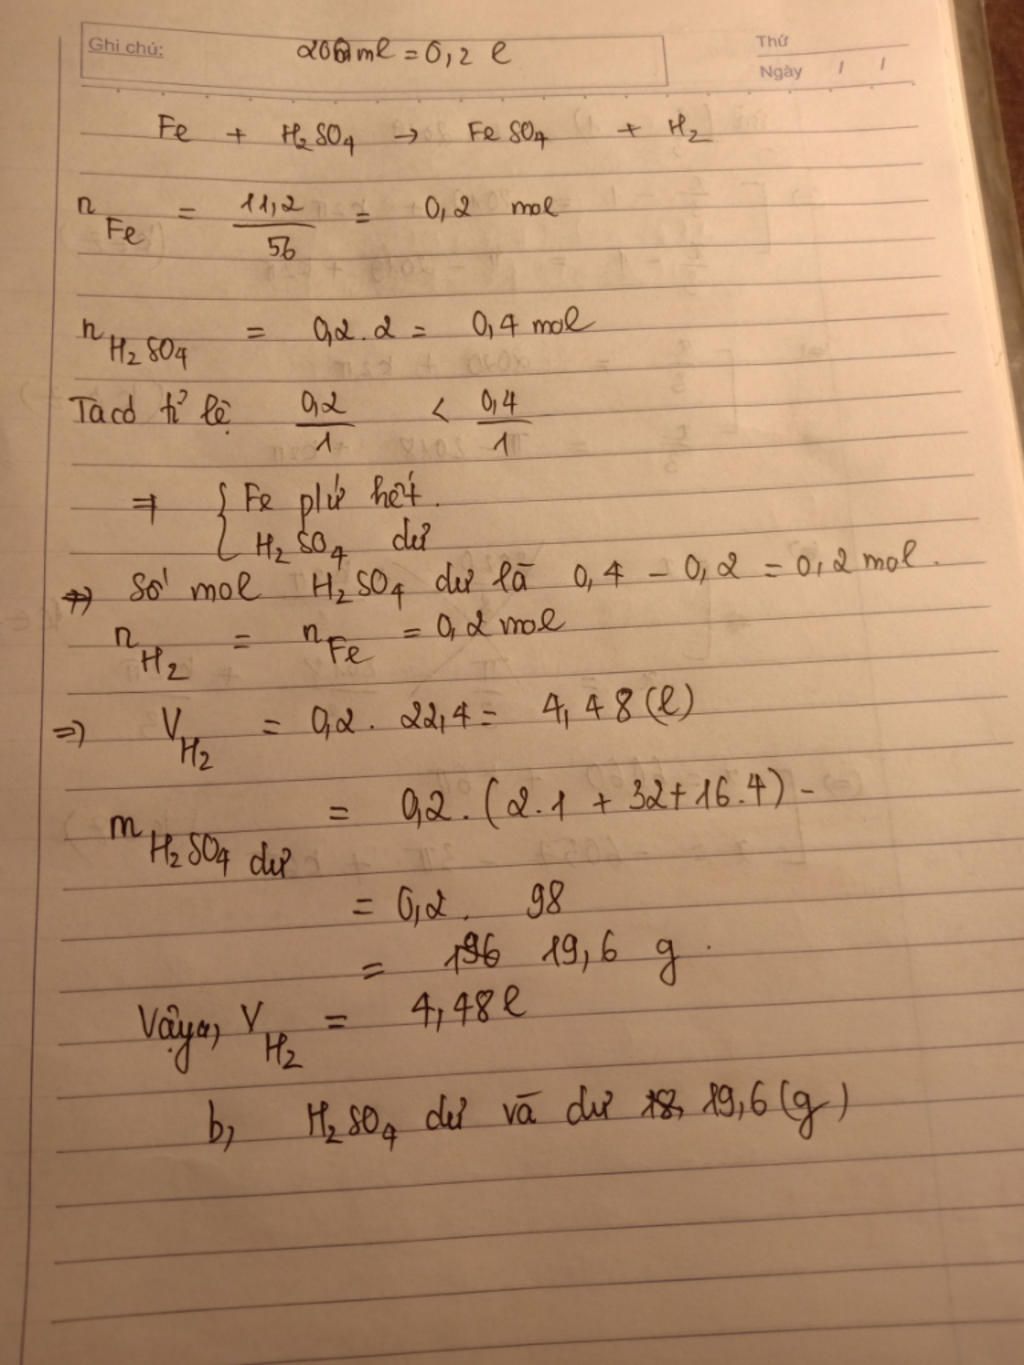 Ghi chú: 200ml = 0,2 l
Thứ
Ngày / /
Fe + H₂SO₄ → FeSO₄ + H₂
n_Fe = 11,2/56 = 0,2 mol
n_H₂SO₄ = 0,2 . 2 = 0,4 mol
Ta có tỉ lệ 0,2/1 < 0,4/1
⇒ { Fe phứ hết.
H₂SO₄ dư
⇒ Số mol H₂SO₄ dư là 0,4 - 0,2 = 0,2 mol.
n_H₂ = n_Fe = 0,2 mol
⇒ V_H₂ = 0,2 . 22,4 = 4,48 (l)
m_H₂SO₄ dư = 0,2 . (2.1 + 32 + 16.4) -
= 0,2 . 98
= 196 19,6 g.
Vậy a, V_H₂ = 4,48 l
b, H₂SO₄ dư và dư 19,6 (g)